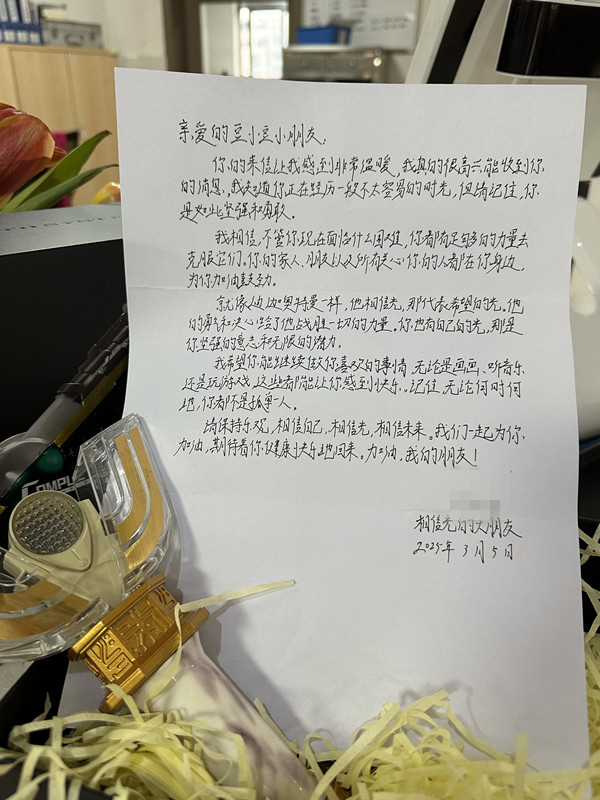 亲爱的豆小豆小朋友:
你的来信让我感到非常温暖,我真的很高兴能收到你
的消息。我知道你正在经历一段不太容易的时光,但请记住,你
是如此坚强和勇敢。
我相信,不管你现在面临什么困难,你都有足够的力量去
克服它们。你的家人、朋友以及所有关心你的人都在你身边,
为你加油鼓劲。
就像迪迦奥特曼一样,他相信光,那代表希望的光。他
的勇气和决心给了他战胜一切的力量。你也有自己的光,那是
你坚强的意志和无限的潜力。
我希望你能继续做你喜欢的事情,无论是画画、听音乐
还是玩游戏,这些都能让你感到快乐。记住,无论何时何
地,你都不是孤单一人。
请保持乐观,相信自己,相信光,相信未来。我们一起为你
加油,期待着你健康快乐地回来。加油,我的朋友!
相信光的大朋友
2025年3月5日
COMPL